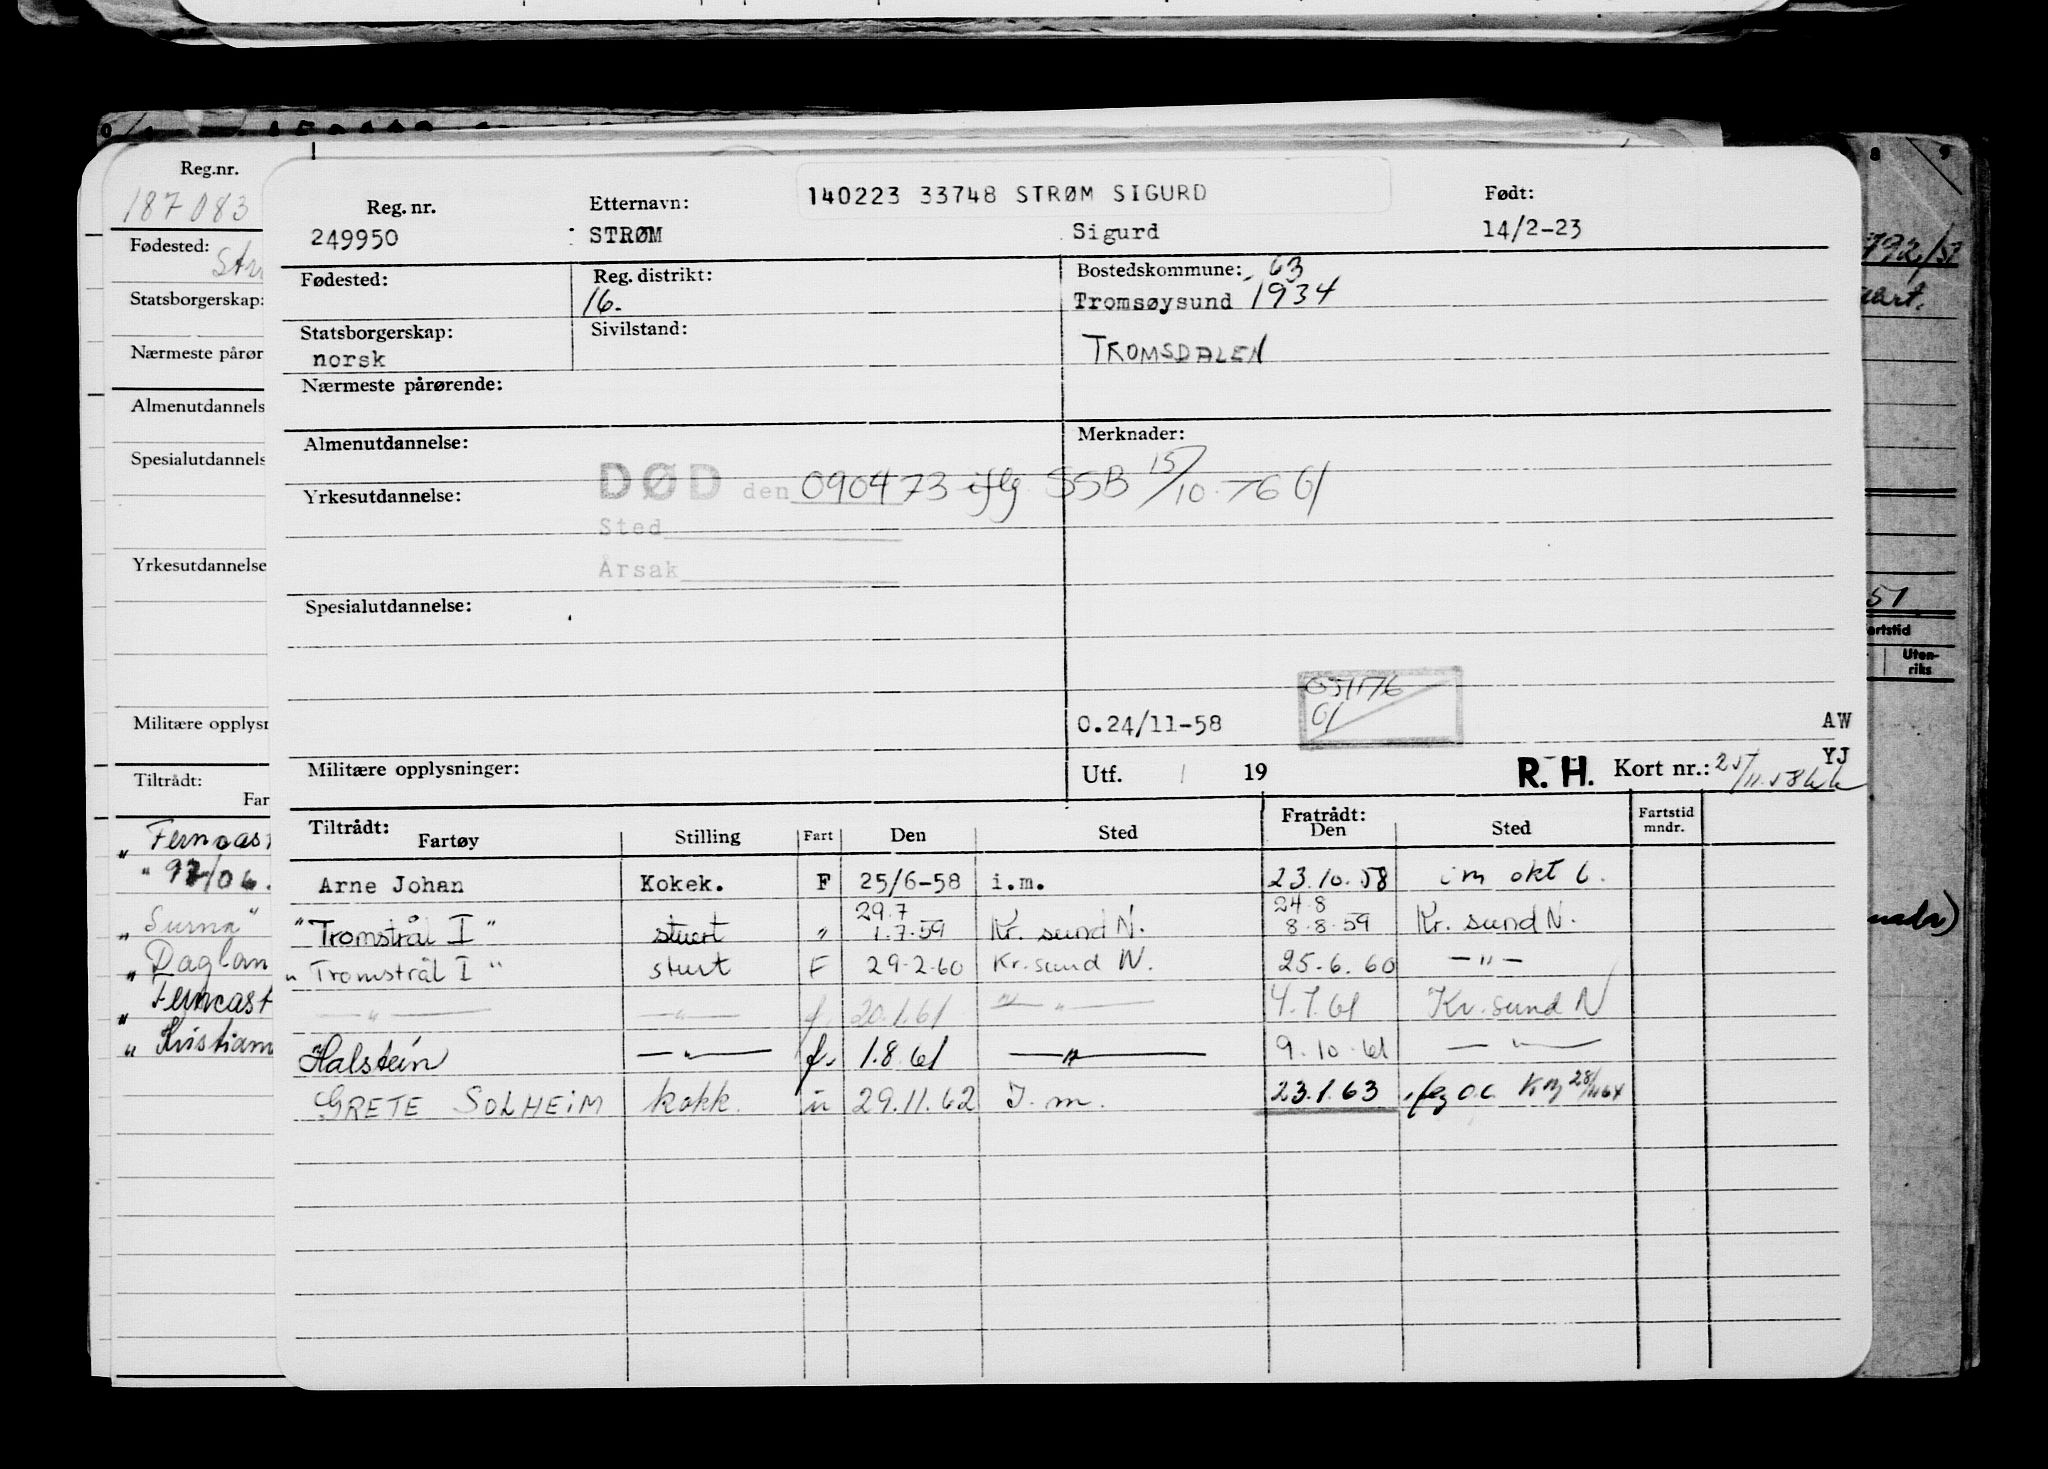 Reg.nr.
187083
Fødested:
Statsborgerskap:
Nærmeste pårør
Almenutdannels
Spesialutdannels
Yrkesutdannelse
Militære opplysn
Tiltrådt:
Far
„ Ferncast
" 97/06.
„ Surna"
„ Daglan
„ Ferncast
„ Kristian
140223 33748 STRØM SIGURD
Reg. nr. Etternavn: Født:
249950 : STRØM Sigurd 14/2-23
Fødested: Reg. distrikt: Bostedskommune: 63
16. Tromsøysund 1934
Statsborgerskap: Sivilstand:
norsk TROMSDALEN
Nærmeste pårørende:
Almenutdannelse: Merknader:
DØD den 090473 iflg. SSB 15/10-76 61
Yrkesutdannelse:
Sted
Årsak
Spesialutdannelse:
051176
61
0.24/11-58 AW
YJ
Militære opplysninger: Utf. / 19 R. H. Kort nr.: 25/11.58
Tiltrådt: Fratrådt: Fartstid
Fartøy Stilling Fart Den Sted Den Sted mndr.
Arne Johan Kokek. F 25/6-58 i.m. 23.10.58 im okt 6.
29.7 24.8
"Tromstrål I" stuert " 1.7.59 Kr. sund N. 8.8.59 Kr. sund N.
"Tromstrål I" sturt F 29-2-60 Kr.sund N. 25-6.60 —"—
—"— —"— f. 20.1.61 —"— 4.7.61 Kr. sund N
Halstein —"— f. 1.8.61 —"— 9.10.61 —"—
GRETE SOLHEIM kokk. u 29.11.62 I.m. 23.1.63
792/51
51
artstid
Uten-
riks